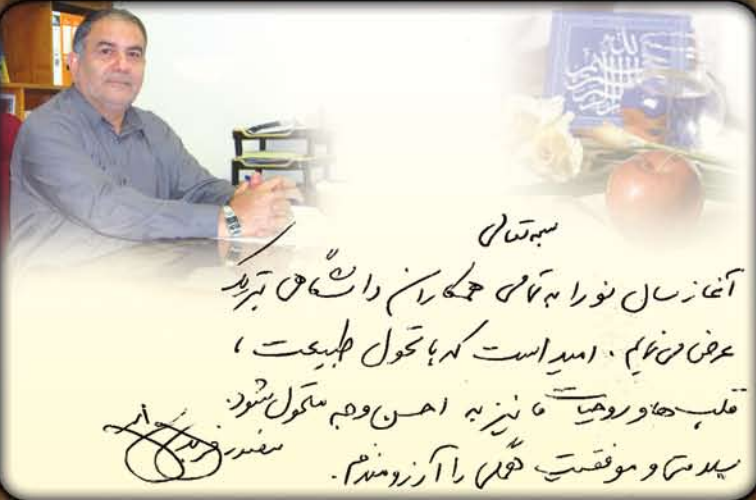 بسمه تعالی
آغاز سال نو را به تمامی همکاران دانشگاهی تبریک
عرض می نمایم . امید است که با تحول طبیعت ،
قلب ها و روحیات ما نیز به احسن وجه متحول شود.
سلامتی و موفقیت همگی را آرزومندم .